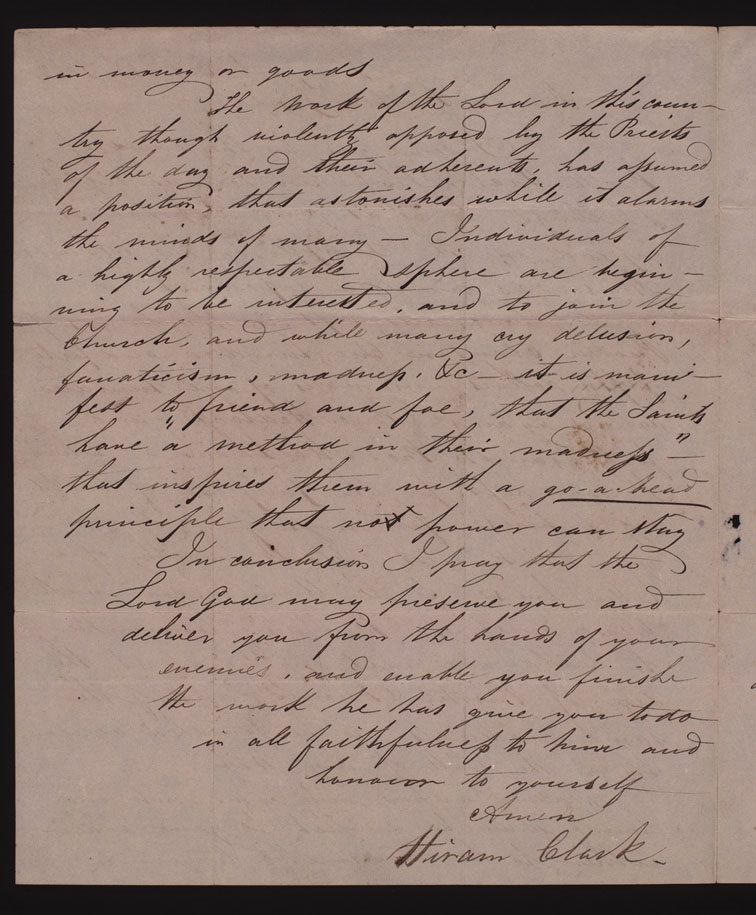 in money or goods
The Work of the Lord in this coun-
try though violently opposed by the Priests
of the day and their adherents, has assumed
a position, that astonishes while it alarms
the minds of many - Individuals of
a highly respectable sphere are begin-
ning to be interested, and to join the
Church, and while many cry delusion,
fanaticism, madness, &c - it is mani-
fest to friend and foe, that the Saints
have "a method in their madness" -
that inspires them with a go-a-head
principle that not power can stay
In conclusion I pray that the
Lord God may preserve you and
deliver you from the hands of your
enemies, and enable you finishe
the work he has give you to do
in all faithfulness to him and
honour to yourself
Amen
Hiram Clark -